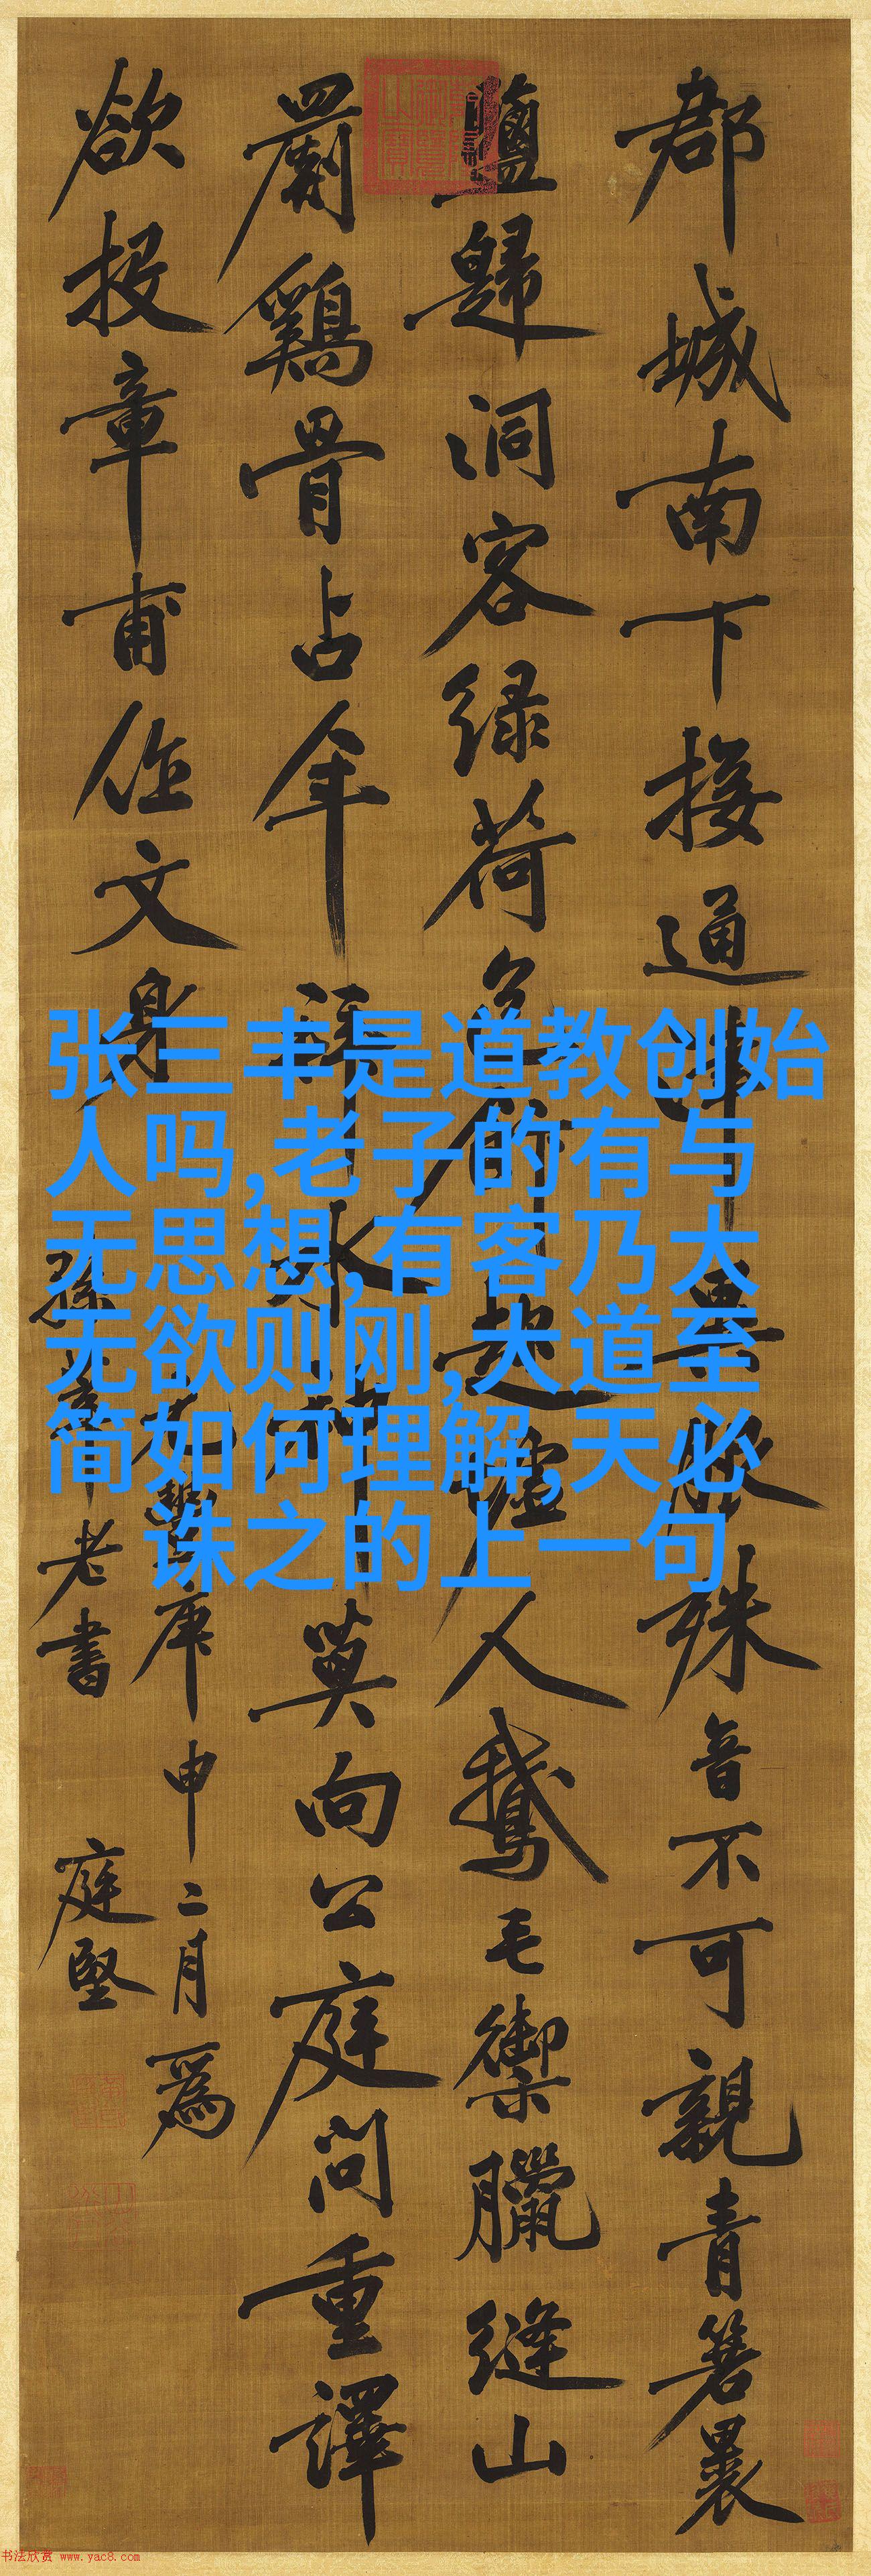 郡城南下接通津異服殊音不可親青箬裹
鹽歸洞客緑荷包飯趁虛人鵝毛禦臘縫山
罽鷄骨占年拜水神莫向公庭問重譯
欲投章甫作文身
元豐庚申二月為
孫莘老書 庭堅
张三丰是道教创始
人吗,老子的有与
无思想,有客乃大
无欲则刚,大道至
简如何理解,天必
诛之的上一句
书法欣赏 www.yac8.com